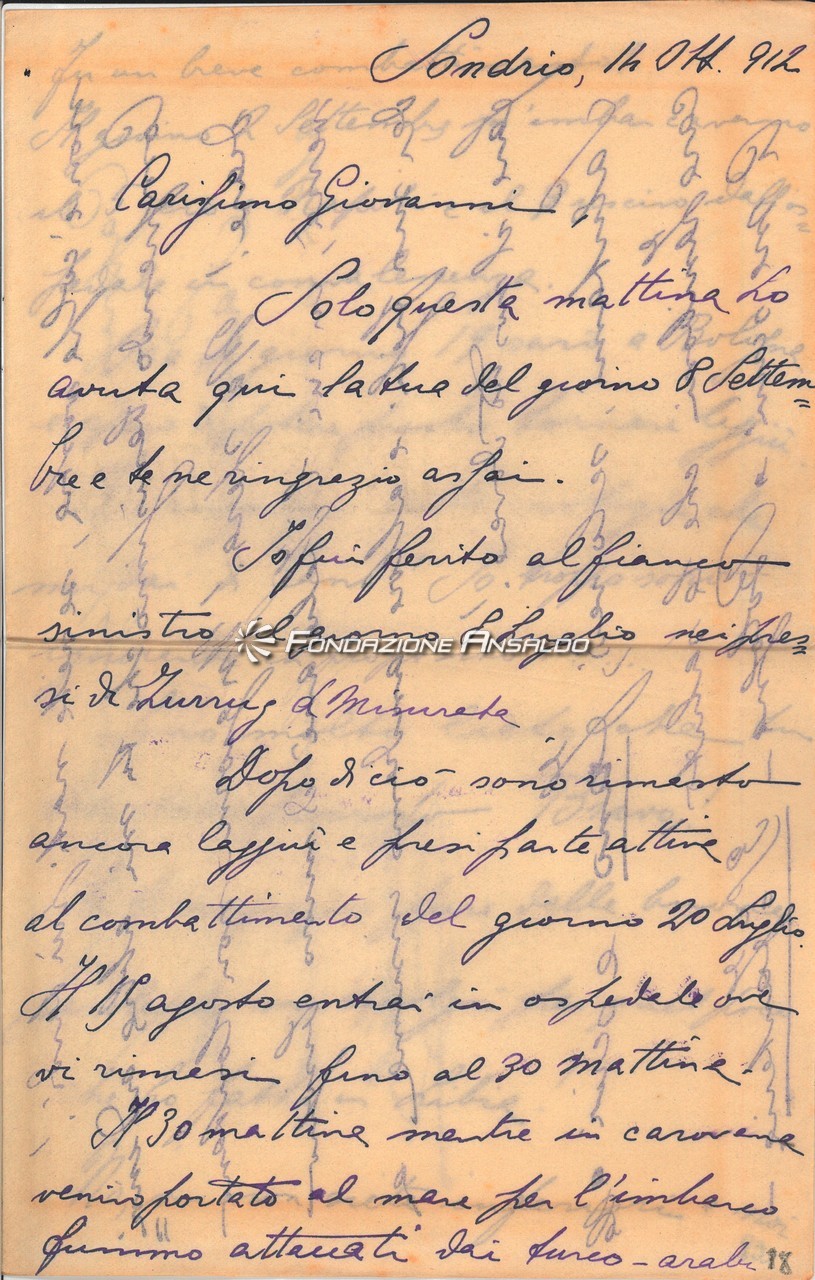 Sondrio, 14 Ott. 912
Carissimo Giovanni,
Solo questa mattina ho
avuta qui la tua del giorno 8 Settem=
bre e te ne ringrazio assai.
Io fui ferito al fianco
sinistro il giorno 8 Luglio nei pres=
si di Zurrug di Misurata
Dopo di ciò sono rimasto
ancora laggiù e presi parte attiva
al combattimento del giorno 20 Luglio.
Il 15 agosto entrai in ospedale ove
vi rimasi fino al 30 mattina.
Il 30 mattina mentre in carovana
venivo portato al mare per l'imbarco
fummo attaccati dai turco-arabi
18
FONDAZIONE ANSALDO